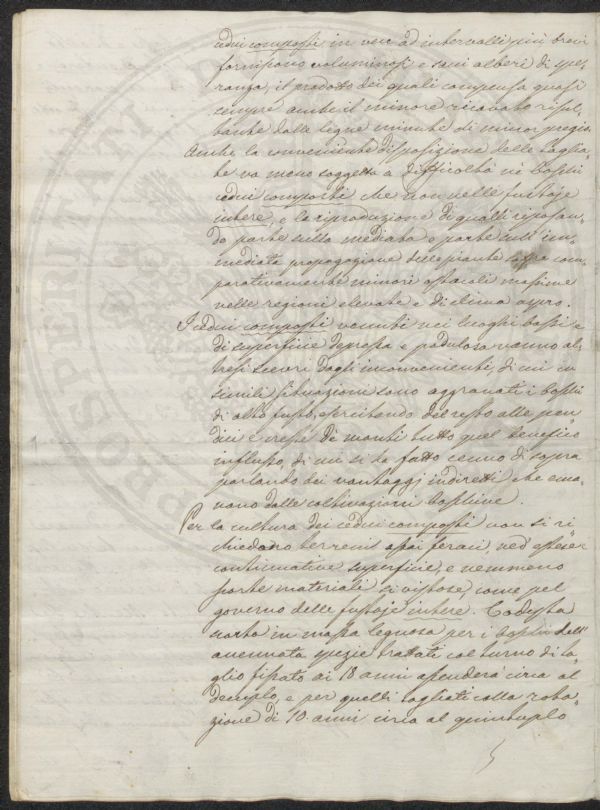 cedui composti, in vece ad intervalli più brevi
forniscono voluminosi, e sani alberi di spe-
ranza, il prodotto dei quali compensa quasi
sempre anche il minore ricavato risul-
tante dalle legne minute di minor pregio.
Anche la conveniente disposizione delle taglia-
te va meno soggetta a difficoltà ne' boschi
cedui composti, che non nelle fustaje
intere, e la riproduzione di quelli riposan-
do parte sulla mediata e parte sull' im-
mediata propagazione delle piante soffre com-
parativamente minori ostacoli massime
nelle regioni elevate e di clima aspro.
I cedui composti venuti nei luoghi bassi e
di superficie depressa e padulosa vanno al-
tresi scevri dagli inconvenienti, di cui in
simili situazioni sono aggravati i boschi
di alto fusto, esercitando del resto alle pen-
dici e creste de' monti tutto quel benefico
influsso, di cui si fa fatto cenno di sopra
parlando dei vantaggj indiretti che ema-
nano dalle coltivazioni boschive.
Per la cultura dei cedui composti non si ri-
chiedono terreni assai feraci, ned' estese e
continuative superficie, e nemmeno
scorte materiali si vistose, come pel
governo delle fustaje intere. Codesta
scorta in massa legnosa per i boschi dell'
avennata spezie trattati col turno di ta-
glio fissato ai 18 anni ascenderà circa al
decuplo, e per quelli tagliati colla rota-
zione di 10 anni circa al quintuplo